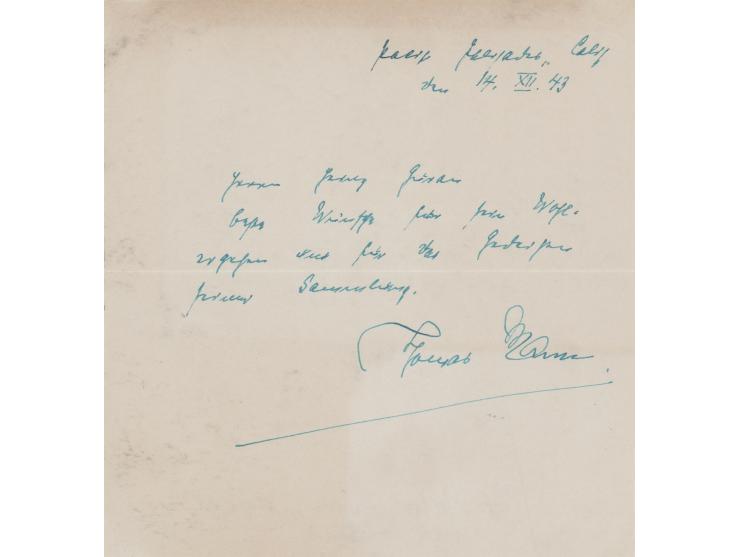 Pacif. Palisades, Calif
den 14. XII. 43
Herrn
beste Wünsche für sein Wohl-
ergehen und für das Gedeihen
seiner Sammlung.
Thomas Mann